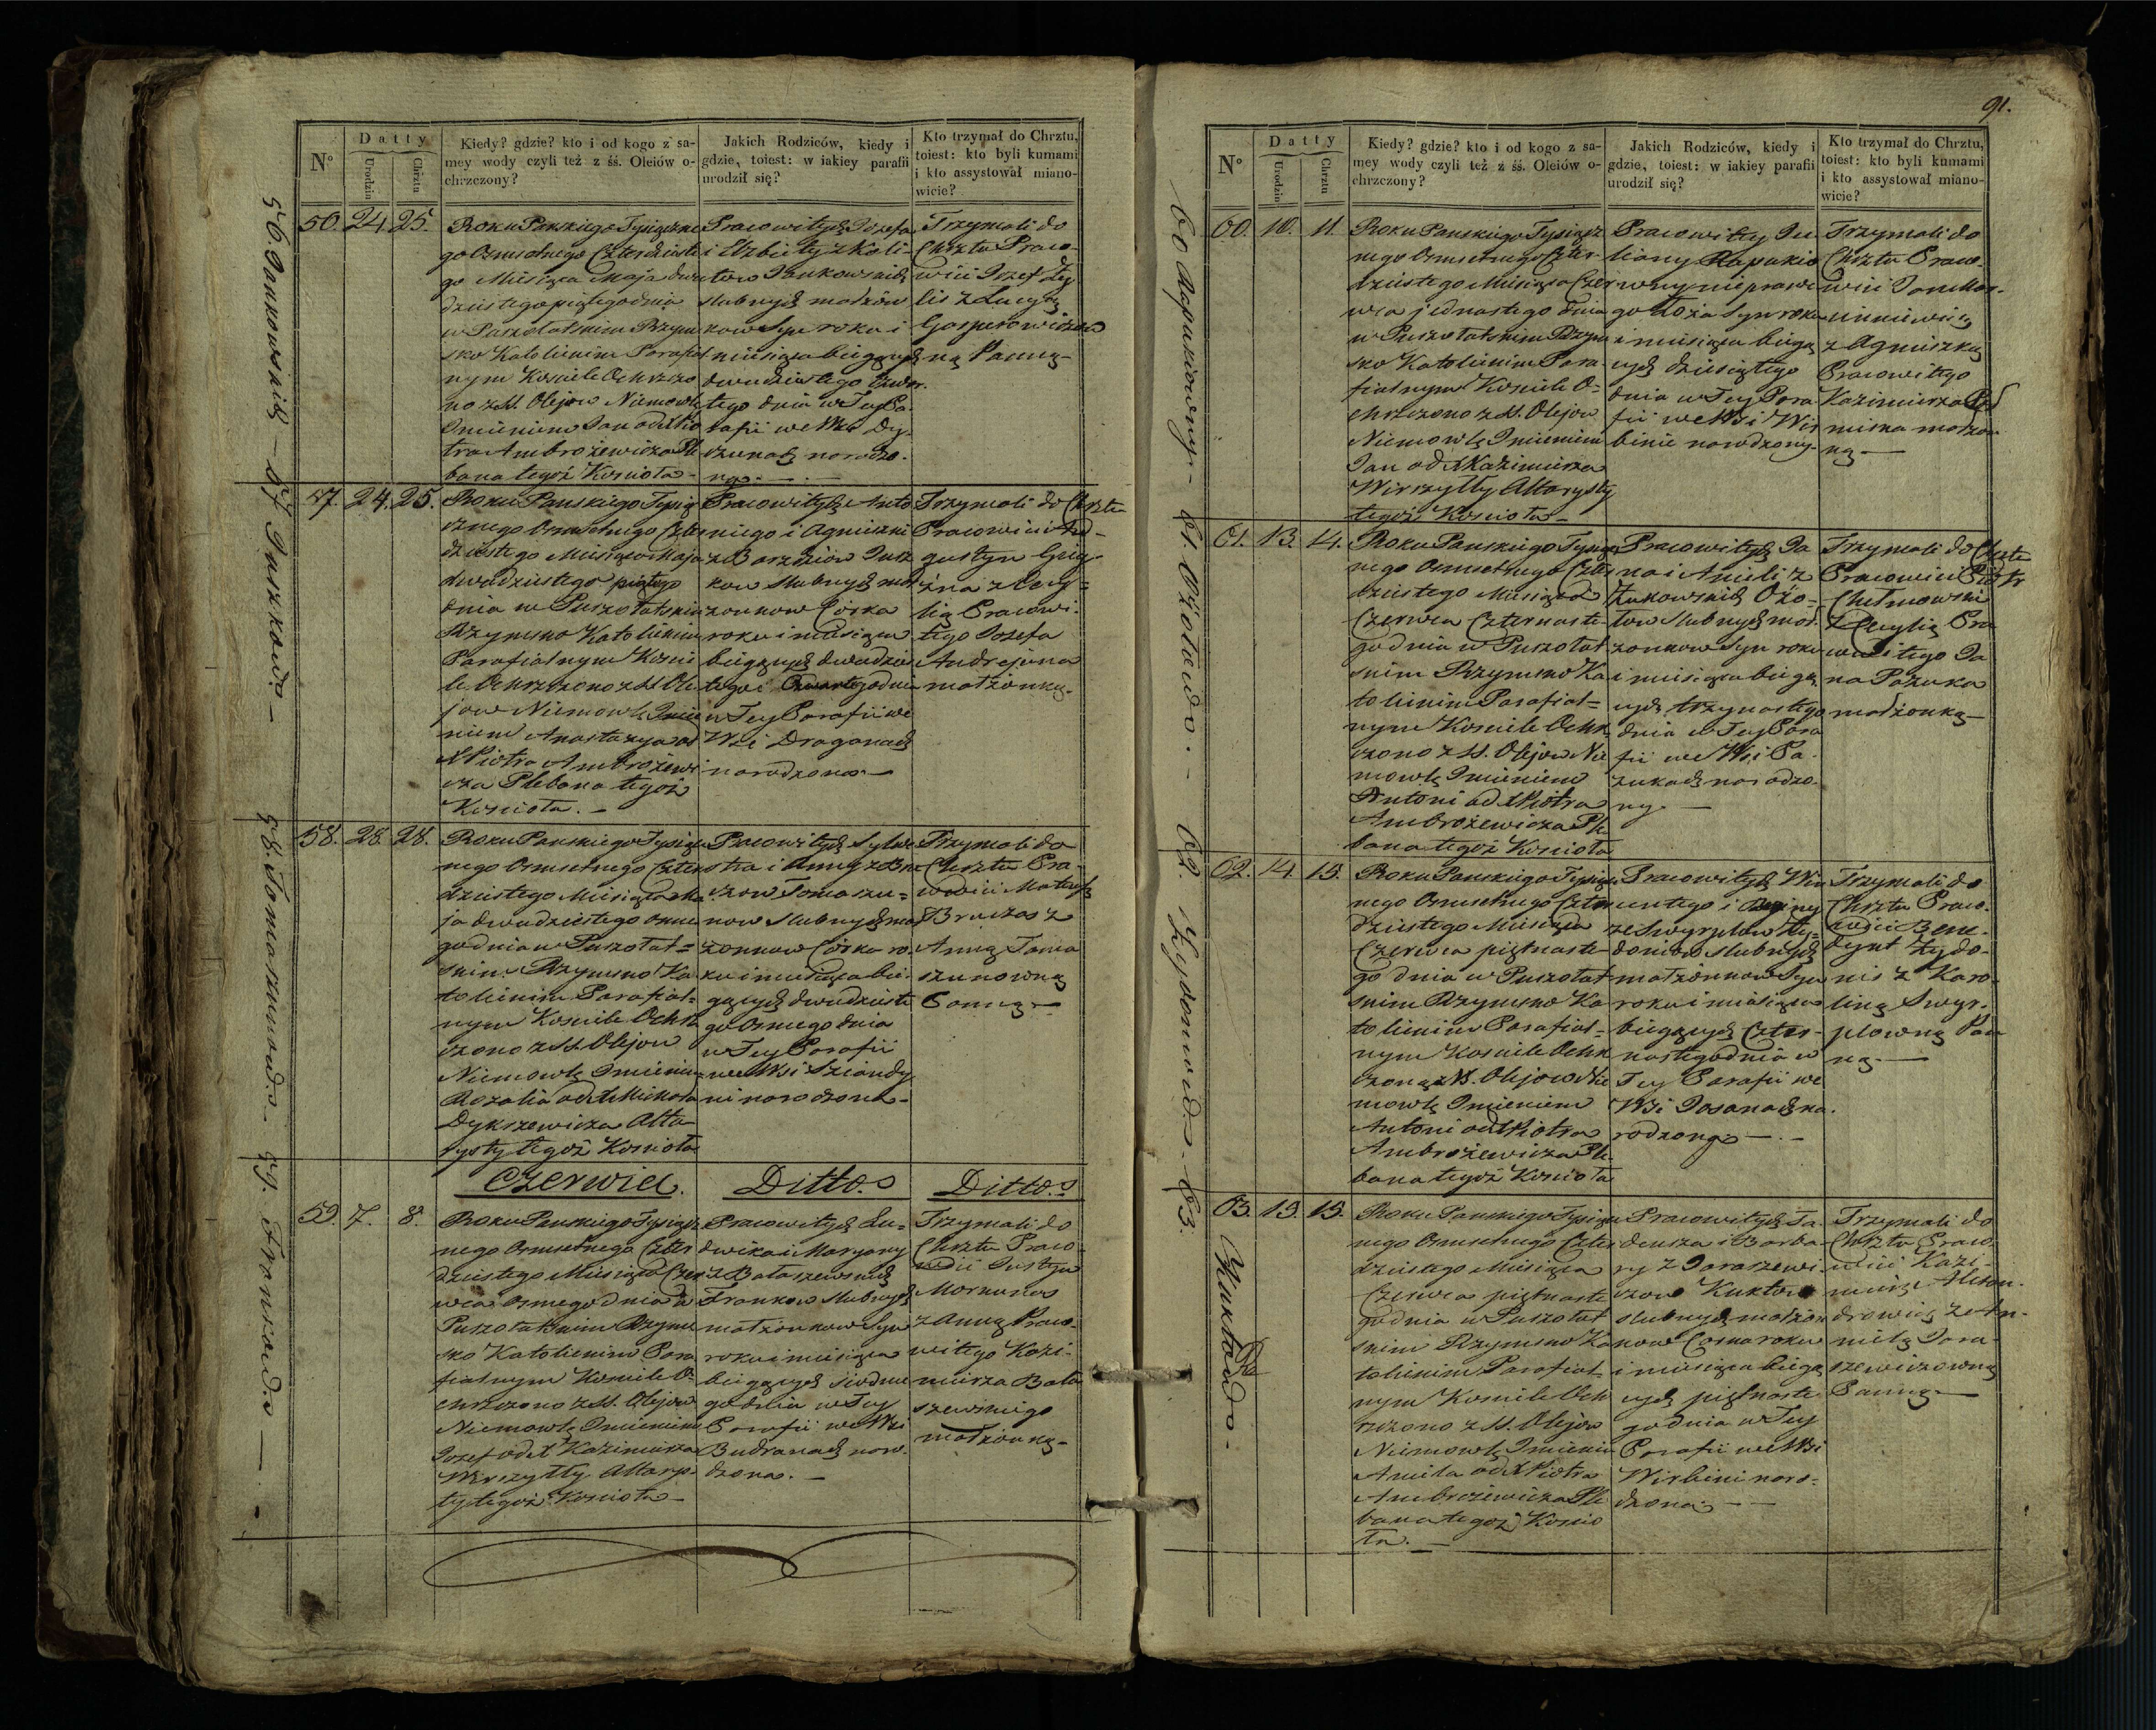 91.
56. Jankowskich — 57. Juszkowa — 58. Tomaszunowa — 59. Frankowa —
N°
Datty
Urodzin
Chrztu
Kiedy? gdzie? kto i od kogo z sa-
mey wody czyli też z śś. Oleiów o-
chrzczony?
Jakich Rodziców, kiedy i
gdzie, toiest: w iakiey parafii
urodził się?
Kto trzymał do Chrztu,
toiest: kto byli kumami
i kto assystował miano-
wicie?
56. 24. 25.
Roku Pańskiego Tysiączne
go Ośmsetnego Czterdzieste
go Miesiąca Maja dwu
dziestego piątego dnia
w Puszołatskim Rzym
sko Katolickim Parafial
nym Kosciele Ochrzczo
no z SS. Olejow Niemowle
Imieniem Jan od X Pio
tra Ambrożewicza Ple
bana tegoż Koscioła -
Pracowitych Józefa
i Elżbiety z Koli-
tow Jankowskich
slubnych małżon
kow Syn roku i
miesiąca bieżących
dwudziestego czwar.
tego dnia w Tey Pa-
rafii we Wsi Dy-
szunach narodzo-
ny. —
Trzymali do
Chrztu Praco-
wici Jozef Ży
lis z Lucyą
Gasperowiczow
ną Panną -
57. 24. 25.
Roku Pańskiego Tysią
cznego Ośmsetnego Czter
dziestego Miesiąca Maja
dwudziestego piątego
dnia w Puszołatskim
Rzymsko Katolickim
Parafialnym Koscie
le Ochrzczono z SS Ole
jow Niemowle Imie
niem Anastazya od
X Piotra Ambrożewi
cza Plebana tegoż
Koscioła. -
Pracowitych Anto
niego i Agnieszki
z Barziow Jusz
kow slubnych mał
żonkow Córka
roku i miesiąca
bieżących dwudzies
tego Czwartego dnia
w Tey Parafii we
Wsi Draganach
narodzona -
Trzymali do Chrztu
Pracowici Au-
gustyn Gryg-
żna z Cecy=
lią Pracowi-
tego Jozefa
Andrejuna
małżonką -
58. 28. 28.
Roku Pańskiego Tysiącz
nego Ośmsetnego Czter
dziestego Miesiąca Ma
ja dwudziestego osme
go dnia w Puszołat=
skim Rzymsko Ka
tolickim Parafial=
nym Kosciele Ochrz
czono z SS. Olejow
Niemowle Imieniem
Rozalia od X Mikoła
Dykszewicza Alta
rysty tegoż Koscioła
Pracowitych Sylwe
stra i Anny z Bra
szow Tomaszu=
now Slubnych mał
żonkow Córka ro-
ku i miesiąca bie-
żących dwudzieste
go Osmego dnia
w Tey Parafii
we Wsi Sziandy
ni narodzona -
Trzymali do
Chrztu Pra-
cowici Mateusz
Brażas z
Anną Toma
szunowną
Panną -
Czerwiec. Ditto. Ditto.
59. 7. 8.
Roku Pańskiego Tysiącz
nego Ośmsetnego Czter
dziestego Miesiąca Czer
wca Osmego dnia w
Puszołatskim Rzym
sko Katolickim Para
fialnym Kosciele O-
chrzczono z SS. Olejow
Niemowle Imieniem
Jozef od X Kazimierza
Wirszyłły Altarys-
ty tegoż Koscioła -
Pracowitych Lu-
dwika i Maryany
z Bałaszewskich
Frankow slubnych
małżonkow Syn
roku i miesiąca
bieżących siodme
go dnia w Tey
Parafii we Wsi
Budranach naro-
dzona. —
Trzymali do
Chrztu Praco-
wici Justyn
Morkunas
z Anną Praco-
witego Kazi-
mierza Bała
szewskiego
małżonką -
60 Rapukiowny - 61. Ożołowa. - 62. Żydoniowa - 63. Kuktowa.
N°
Datty
Urodzin
Chrztu
Kiedy? gdzie? kto i od kogo z sa-
mey wody czyli też z śś. Oleiów o-
chrzczony?
Jakich Rodziców, kiedy i
gdzie, toiest: w iakiey parafii
urodził się?
Kto trzymał do Chrztu,
toiest: kto byli kumami
i kto assystował miano-
wicie?
60. 10. 11.
Roku Pańskiego Tysiącz
nego Ośmsetnego Czter-
dziestego Miesiąca Czer
wca jednastego dnia
w Puszołatskim Rzym
sko Katolickim Para
fialnym Kosciele O-
chrzczono z SS. Olejow
Niemowle Imieniem
Jan od X Kazimierza
Wirszyłły Altarysty
tegoż Koscioła -
Pracowitey Ju
liany Rapukio
wny nieprawe
go Łoża Syn roku
i miesiąca bieżą
cych dziesiątego
dnia w Tey Para
fii we Wsi Wir
binie narodzony -
Trzymali do
Chrztu Praco-
wici Jan Mar-
cinkiewicz
z Agnieszką
Pracowitego
Kazimierza
małżon
ką —
61. 13. 14.
Roku Pańskiego Tysiącz
nego Ośmsetnego Czter
dziestego Miesiąca
Czerwca Czternaste
go dnia w Puszołat
skim Rzymsko Ka
tolickim Parafial=
nym Kosciele Ochrz
czono z SS. Olejow Nie
mowle Imieniem
Antoni od X Piotra
Ambrożewicza Ple
bana tegoż Koscioła
Pracowitych Ja
na i Anieli z
Żukowskich Ożo-
łow slubnych mał
żonkow Syn roku
i miesiąca bieżą
cych trzynastego
dnia w Tey Para
fii we Wsi Pa-
żukach narodzo-
ny. —
Trzymali do Chrztu
Pracowici Piotr
Chełmowski
z Cecylią Pra
cowitego Ja
na Pażuka
małżonką —
62. 14. 15.
Roku Pańskiego Tysiącz
nego Ośmsetnego Czter
dziestego Miesiąca
Czerwca piętnaste-
go dnia w Puszołat
skim Rzymsko Ka
tolickim Parafial=
nym Kosciele Ochrz
czono z SS. Olejow Nie
mowle Imieniem
Antoni od X Piotra
Ambrożewicza Ple
bana tegoż Koscioła
Pracowitych Win
centego i
ze Swyrplow Ży=
doniow slubnych
małżonkow Syn
roku i miesiąca
bieżących Czter-
nastego dnia w
Tey Parafii we
Wsi Josanach na-
rodzony —
Trzymali do
Chrztu Praco-
wici Bene-
dykt Żydo-
nis z Karo-
liną Swyr-
plowną Pan
ną —
63. 15. 15.
Roku Pańskiego Tysiącz
nego Ośmsetnego Czter
dziestego Miesiąca
Czerwca piętnaste
go dnia w Puszołat
skim Rzymsko Ka
tolickim Parafial
nym Kosciele Och
rzczono z SS. Olejow
Niemowle Imieniem
Aniela od X Piotra
Ambrożewicza Ple
bana tegoż Koscio
ła. —
Pracowitych Ta-
deusza i Barba-
ry z Daraszewi-
czow Kuktow
slubnych małżon
kow Corka roku
i miesiąca bieżą
cych piętnaste
go dnia w Tey
Parafii we Wsi
Wirbini naro-
dzona —
Trzymali do
Chrztu Praco-
wici Kazi-
mierz Alexan-
drowicz z An-
nielą Dara-
szewiczowną
Panną —